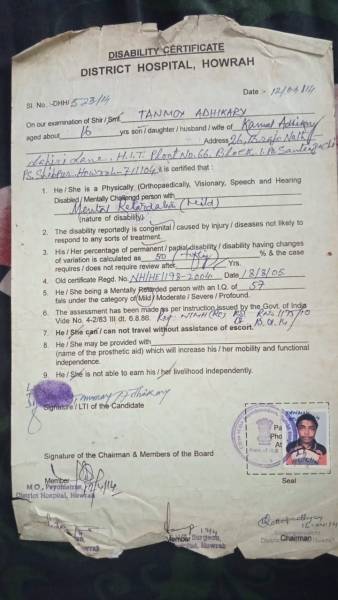 DISABILITY CERTIFICATE
DISTRICT HOSPITAL, HOWRAH
Sl. No.-DHH/523/14
Date :- 12/04/14
On our examination of Shir / Smt. TANMOY ADHIKARY
aged about 16 yrs son / daughter / husband / wife of Kamal Adhikary
Address 26,
Lane, H.I.T. Ploat No. 66, Block
P.S. Shibpur, Howrah-711104 it is certified that :
1. He / She is a Physically (Orthopaedically, Visionary, Speech and Hearing
Disabled / Mentally Challengd person with
Mental Retardation (Mild)
(nature of disability).
2. The disability reportedly is congenital / caused by injury / diseases not likely to
respond to any sorts of treatment.
3. His / Her percentage of permanent / partial disability / disability having changes
of variation is calculated as 50 (Fifty) % & the case
requires / does not require review after Yrs.
4. Old certificate Regd. No. NH/HE/193-2004 Date 18/3/05
5. He / She being a Mentaly Retarded person with an I.Q. of 57
fals under the category of Mild / Moderate / Severe / Profound.
6. The assessment has been made as per instruction issued by the Govt. of India
Vide No. 4-2/83 III dt. 6.8.86.
7. He / She can / can not travel without assistance of escort.
8. He / She may be provided with
(name of the prosthetic aid) which will increase his / her mobility and functional
independence.
9. He / She is not able to earn his / her livelihood independently.
Tanmoy Adhikary
Signature / LTI of the Candidate
Signature of the Chairman & Members of the Board
Seal
Member
M.O., Psychiatrist
District Hospital, Howrah
Member
Surgeon
Hospital, Howrah
Chairman